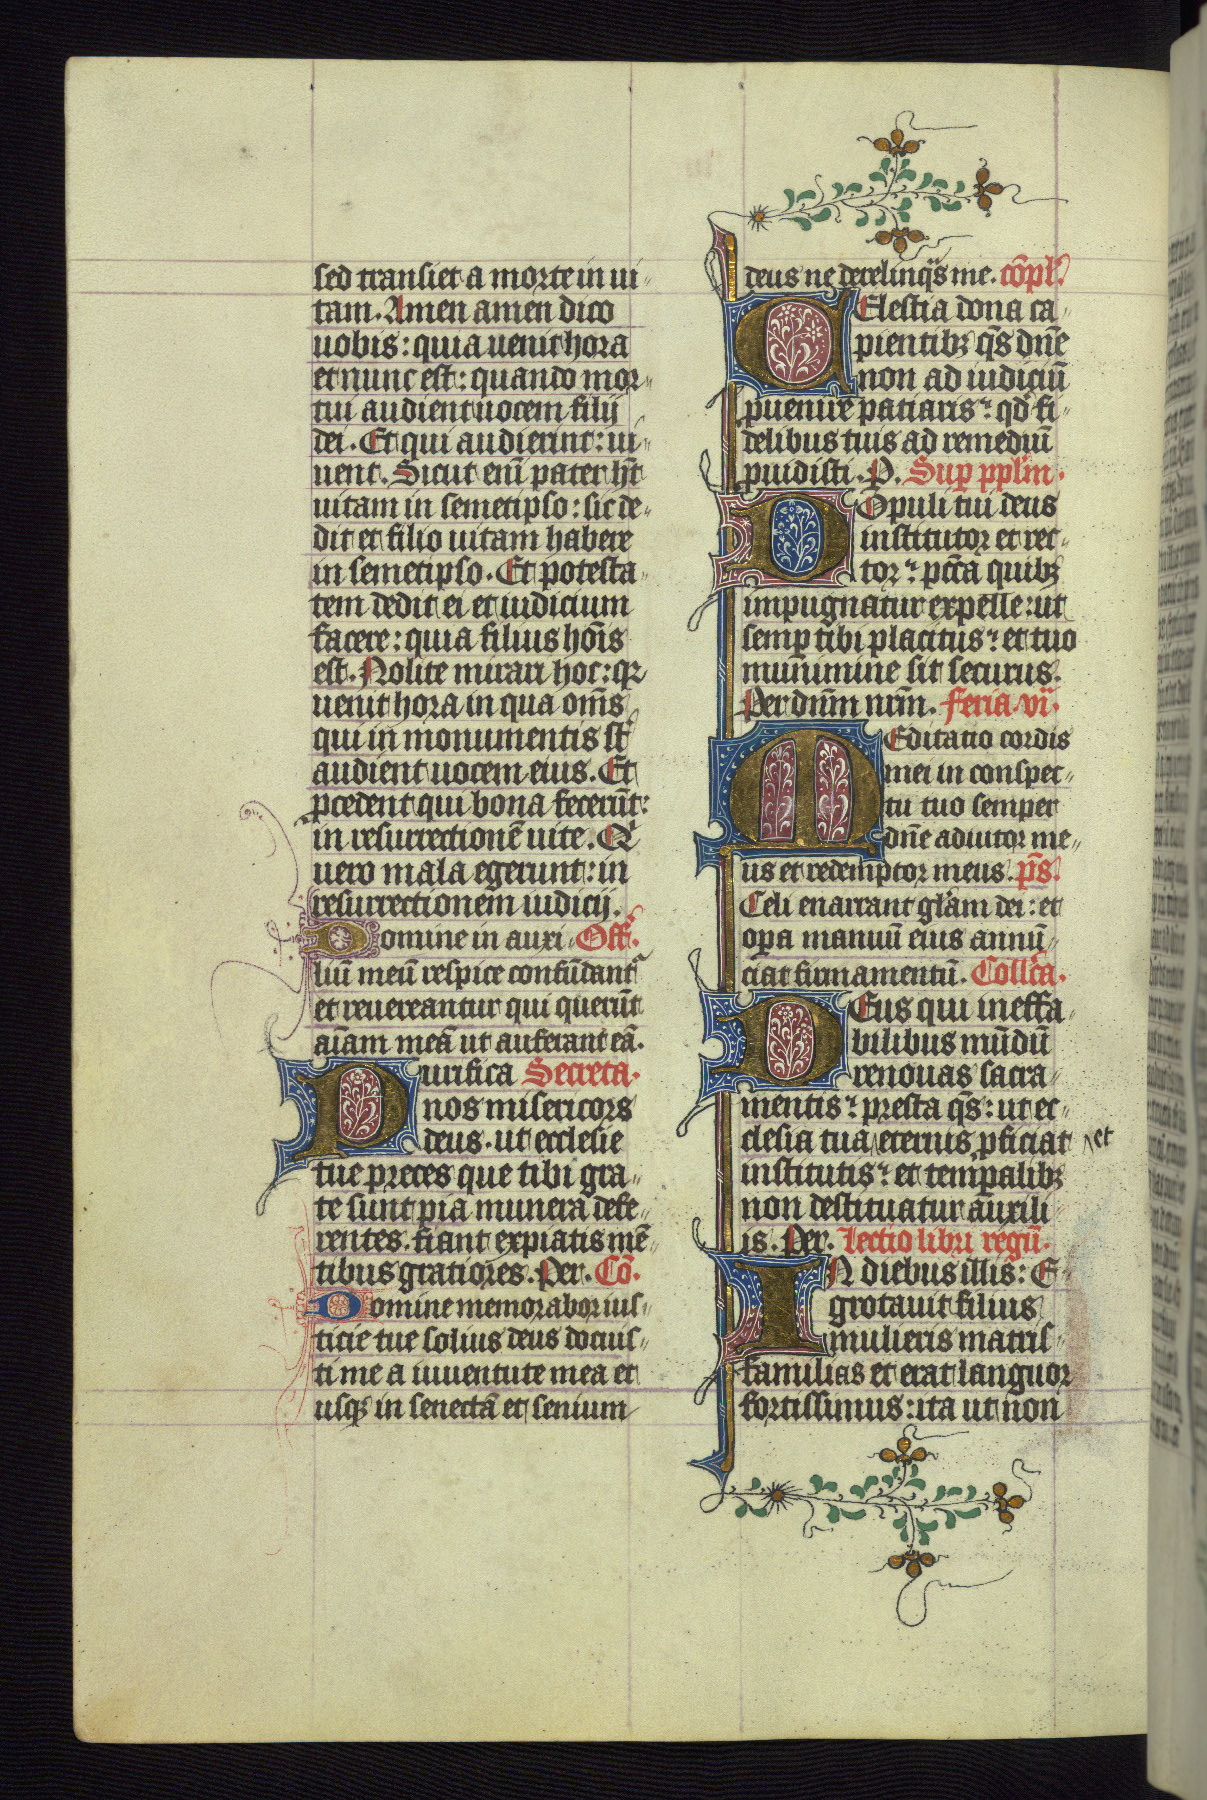 sed transiet a morte in ui〃
tam. Amen amen dico
uobis: quia uenit hora
et nunc est: quando mor〃
tui audient uocem filij
dei. Et qui audierint: ui〃
uent. Sicut eni̅ pater h̅t
uitam in semetipso: sic de〃
dit et filio uitam habere
in semetipso. Et potesta〃
tem dedit ei et iudicium
facere: quia filius ho̅is
est. Nolite mirari hoc: qr
uenit hora in qua om̅s
qui in monumentis s̅t
audient uocem eius. Et
ꝓcedent qui bona feceru̅t:
in resurrectione̅ uite. Qi
uero mala egerunt: in
resurrectionem iudicij.
Domine in auxi Off̅.
liu̅ meu̅ respice confu̅dant
et reuereantur qui queru̅t
ai̅am mea̅ ut auferant ea̅.
Purifica Secreta.
nos misericors
deus. ut ecclesie
tue preces que tibi gra〃
te sunt pia munera defe〃
rentes. fiant expiatis me̅
tibus gratiores. Per. Co̅.
Domine memorabor ius〃
ticie tue solius deus docuis〃
ti me a iuuentute mea et
usqꝫ in senecta̅ et senium
deus ne derelinq̅s me. co̅pl̅.
Celestia dona ca〃
pientibꝫ q̅s dn̅e
non ad iudiciu̅
ꝑuenire patiaris: qd̅ fi〃
delibus tuis ad remediu̅
ꝓuidisti. P. Suꝑ ppl̅m.
Populi tui deus
institutor et rec〃
tor: pcc̅a quibꝫ
impugnatur expelle: ut
semꝑ tibi placitus: et tuo
munimine sit securus.
Per dn̅m nr̅m. feria vi.
Meditatio cordis
mei in conspec〃
tu tuo semper
dn̅e adiutor me〃
us et redemptor meus. p̅s.
Celi enarrant gl̅am dei: et
oꝑa manuu̅ eius annu̅〃
ciat firmamentu̅. Collc̅a.
Deus qui ineffa
bilibus mu̅du̅
renouas sacra
mentis: presta q̅s: ut ec〃
clesia tua eternis ꝓficiat et
institutis: et temꝑalibꝫ
non destituatur auxili
is. Per. Lectio libri regu̅.
IN diebus illis: E〃
grotauit filius
mulieris matris〃
familias et erat languor
fortissimus: ita ut non